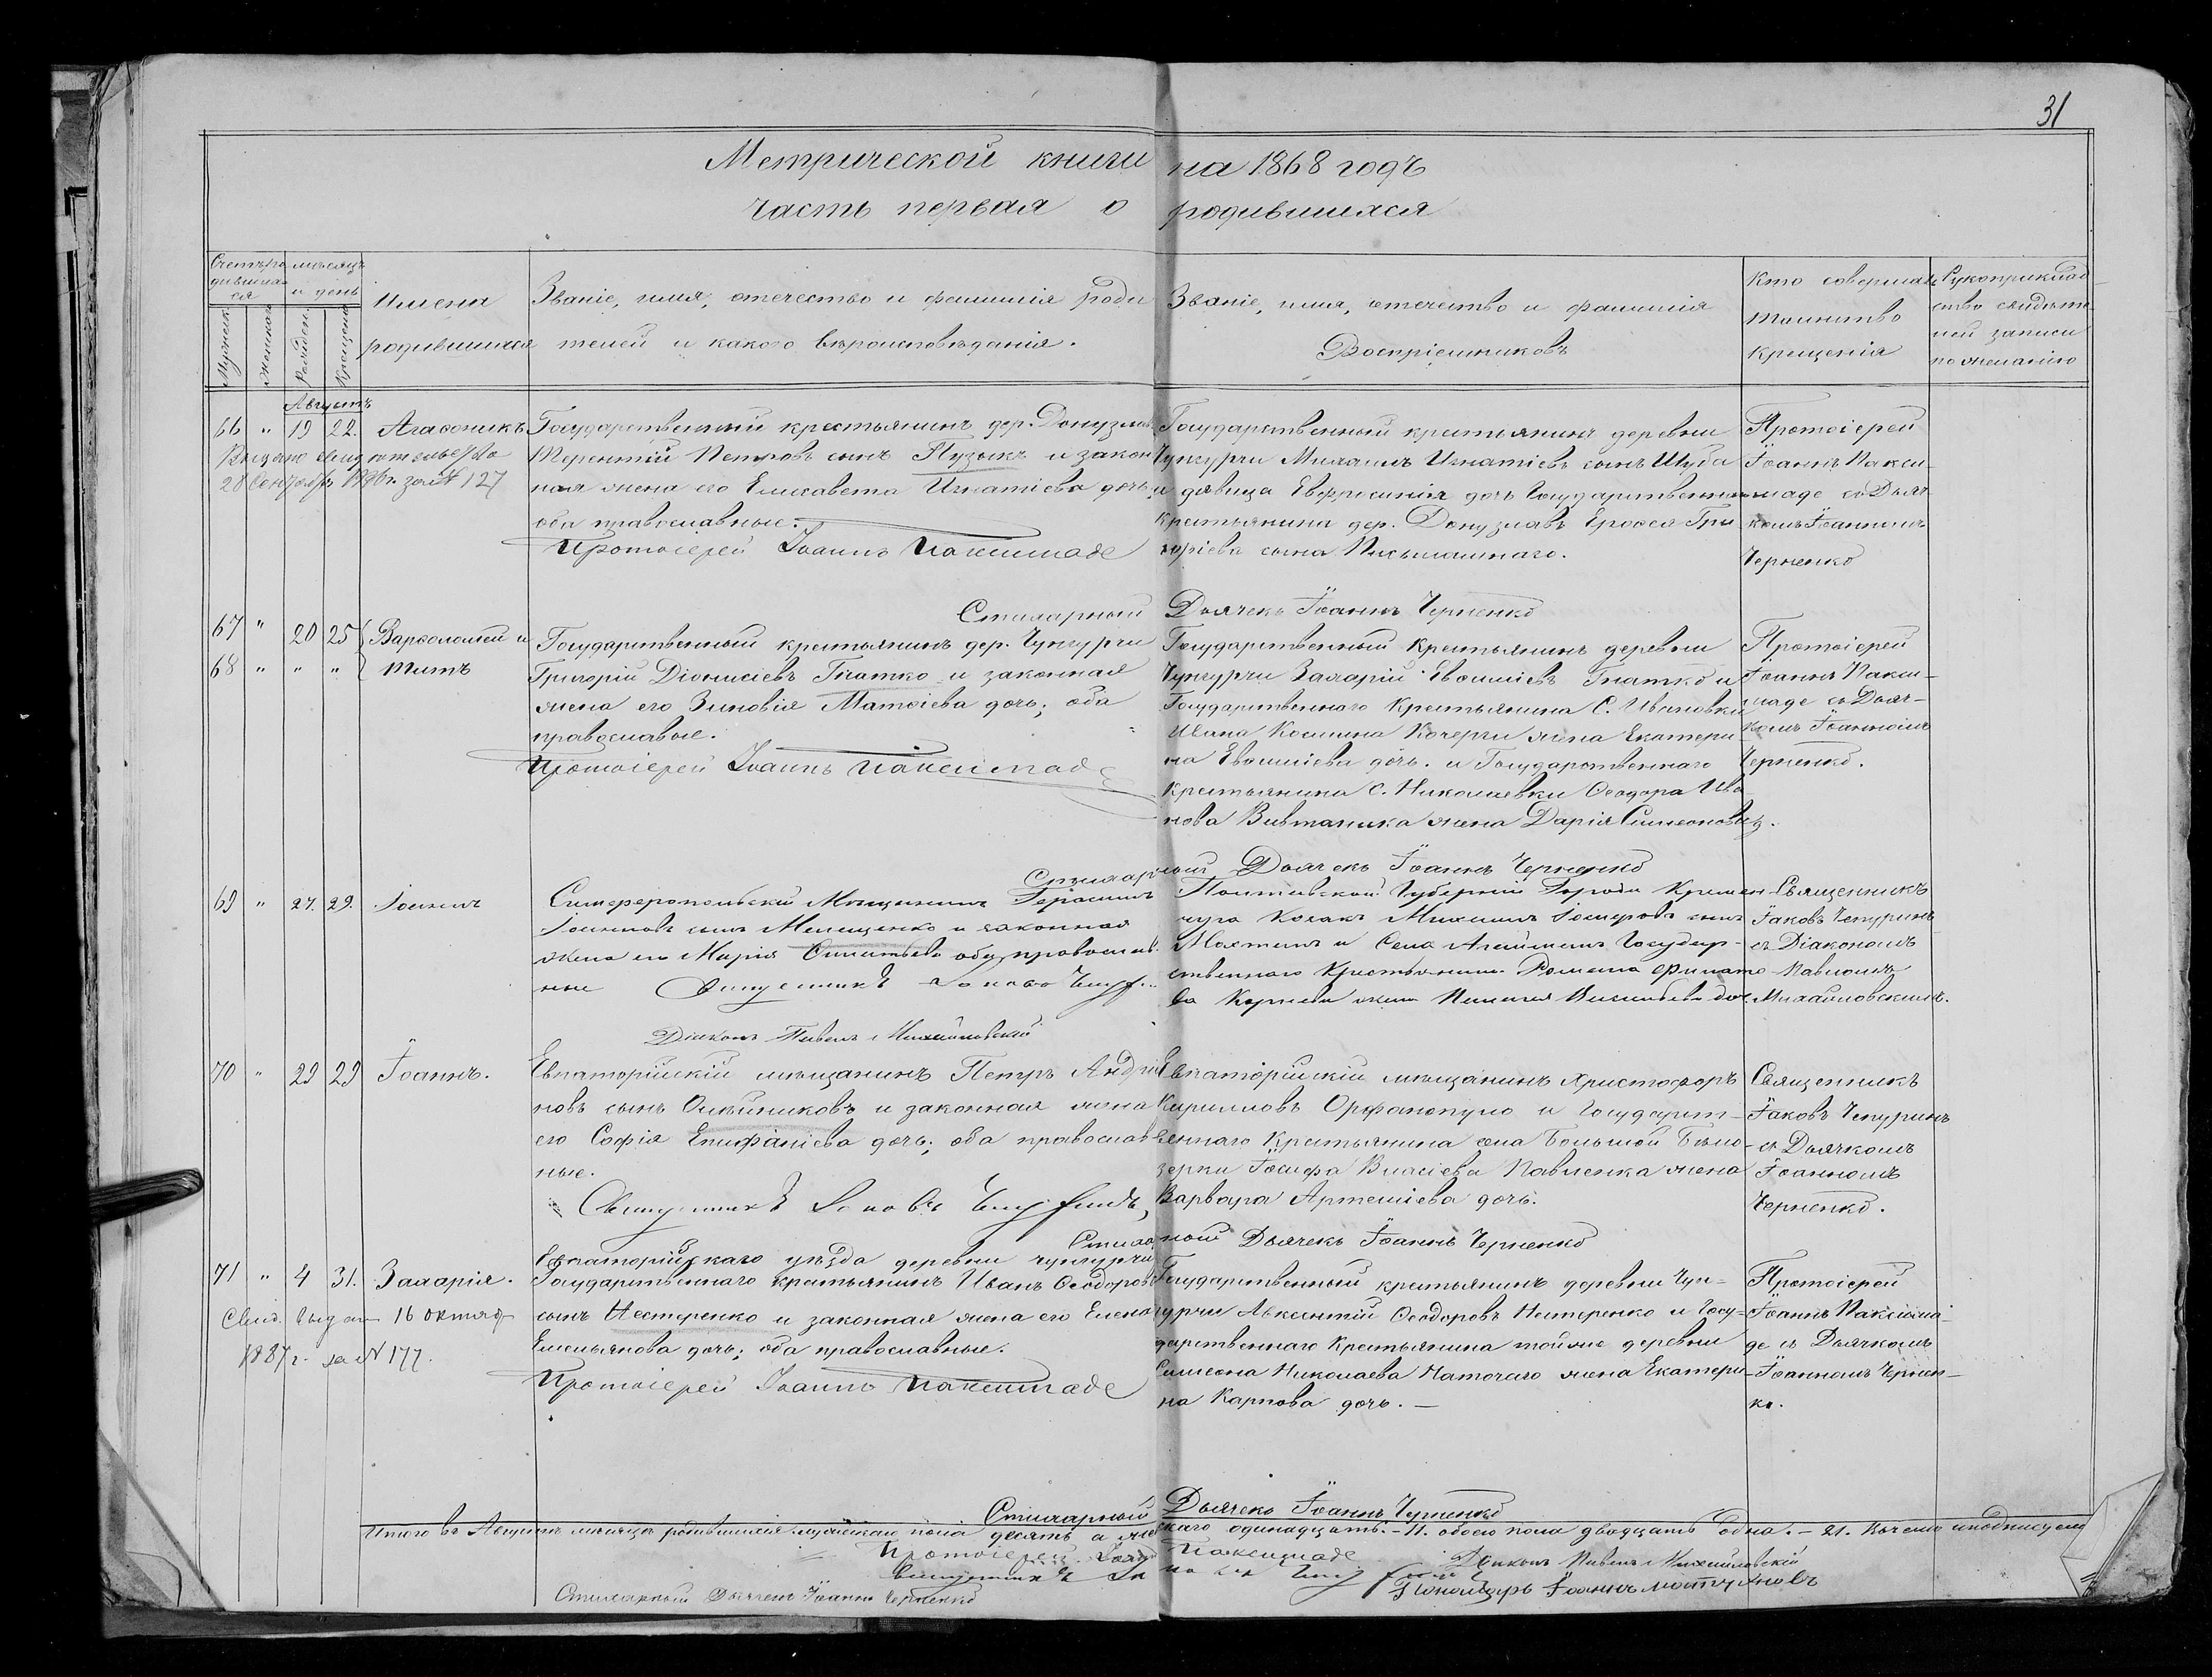 31
Метрической книги на 1868 годъ
часть первая о родившихся
Счетъ ро
дивших
ся
мѣсяцъ
и день
Мужеск.
Женска
Рожден.
Крещен.
Имена
родившихся
Званіе, имя, отечество и фамилія роди
телей и какого вѣроисповѣданія.
Званіе, имя, отечество и фамилія
Воспріемниковъ
Кто совершалъ
таинство
крещенія
Рукоприклад
ство свидѣте
лей записи
по желанію
Августъ
66 " 19 22. Агаѳоникъ
№ 127
Государственный крестьянинъ дер. Донузлавъ
Терентій Петровъ сынъ Пузыкъ и закон
ная жена его Елисавета Игнатіева дочь,
оба православные.
Протоіерей Іоаннъ Паксимаде
Государственный крестьянинъ деревни
Чунгурчи Михаилъ Игнатіевъ сынъ Шуба
и дѣвица Евфросинія дочь Государственнаго
крестьянина дер. Донузлавъ Ерофея Гри
горіева сына Письменнаго.
Протоіерей
Іоаннъ Пакси-
маде съ Дьяч-
комъ Іоанномъ
Черненко
Стихарный Дьячекъ Іоаннъ Черненко
67 " 20 25 Варѳоломей и
68 " " " Титъ
Государственный крестьянинъ дер. Чунгурчи
Григорій Діонисіевъ Гнатко и законная
жена его Зиновія Матѳіева дочь; оба
православные.
Протоіерей Іоаннъ Паксимаде
Государственный крестьянинъ деревни
Чунгурчи Захарій Евѳиміевъ Гнатко и
Государственнаго крестьянина С. Ивановки
Ивана Косьмина Кочерги жена Екатери-
на Евѳиміева дочь. и Государственнаго
крестьянина С. Николаевки Ѳеодора Ива
нова жена Дарія Симеонова.
Протоіерей
Іоаннъ Пакси-
маде съ Дьяч-
комъ Іоанномъ
Черненко.
Стихарный Дьячекъ Іоаннъ Черненко
69 " 27. 29. Іоаннъ
Симферопольскій Мѣщанинъ Герасимъ
Іоанновъ сынъ Мелещенко и законная
жена его Марія оба православ
ные Священникъ Іаковъ Чепуринъ
Діаконъ Павелъ Михайловскій
Полтавской Губерніи Города Кремен
чуга Козакъ Михаилъ Іосифовъ сынъ
и Села Агайманъ Государ-
ственнаго Крестьянина Романа
жена Пелагея Васильева доч
Священникъ
Іаковъ Чепуринъ
съ Діакономъ
Павломъ
Михайловскимъ.
70 " 29 29 Іоаннъ.
Евпаторійскій мѣщанинъ Петръ Андрія
новъ сынъ Олѣйниковъ и законная жена
его Софія Епифаніева дочь; оба православ
ные.
Священникъ Іаковъ Чепуринъ,
Евпаторійскій мѣщанинъ Христофоръ
Кирилловъ Орфанопуло и Государст-
веннаго Крестьянина села Большой Бѣло-
зерки Іосифа Власіева Павленка жена
Варвара Артеміева дочь.
Священникъ
Іаковъ Чепуринъ
съ Дьячкомъ
Іоанномъ
Черненко.
Стихарный Дьячекъ Іоаннъ Черненко
71 " 4 31. Захарія.
Свид. выдан 16 октяб
1887 г. за № 177.
Евпаторійскаго уѣзда деревни Чунгурчи
Государственнаго крестьянинъ Иванъ Ѳеодоровъ
сынъ Нестеренко и законная жена его Елена
Емельянова дочь; оба православные.
Протоіерей Іоаннъ Паксимаде
Государственный крестьянинъ деревни Чун-
гурчи Авксентій Ѳеодоровъ Нестеренко и Госу-
дарственнаго Крестьянина тойже деревни
Симеона Николаева Наточаго жена Екатери-
на Карпова дочь. —
Протоіерей
Іоаннъ Паксима
де съ Дьячкомъ
Іоанномъ Чернен-
ко.
Стихарный Дьячекъ Іоаннъ Черненко
Итого въ Августѣ мѣсяцѣ родившихся мужескаго пола десять а женскаго одинадцать. - 11. обоего пола двадцать одна. - 21. Въ чемъ и подписуемся
Протоіерей Іоаннъ Паксимаде
Священникъ Іаковъ Чепуринъ
Діаконъ Павелъ Михайловскій
Стихарный Дьячекъ Іоаннъ Черненко
Пономарь Іоаннъ